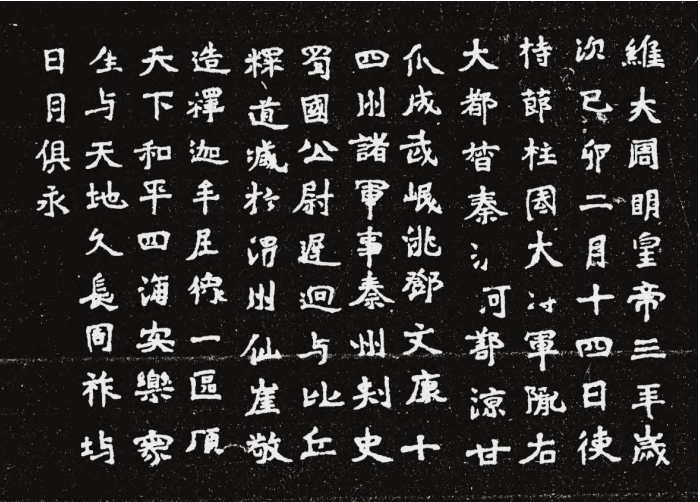 維大周明皇帝三年歲
次己卯二月十四日使
持節柱國大將軍隴右
大都督秦渭河鄯涼甘
瓜成武岷洮鄧文康十
四州諸軍事秦州刺史
蜀國公尉遲迥与比丘
釋道藏於渭州仙崖敬
造釋迦牟尼像一區願
天下和平四海安樂眾
生与天地久長周祚与
日月俱永